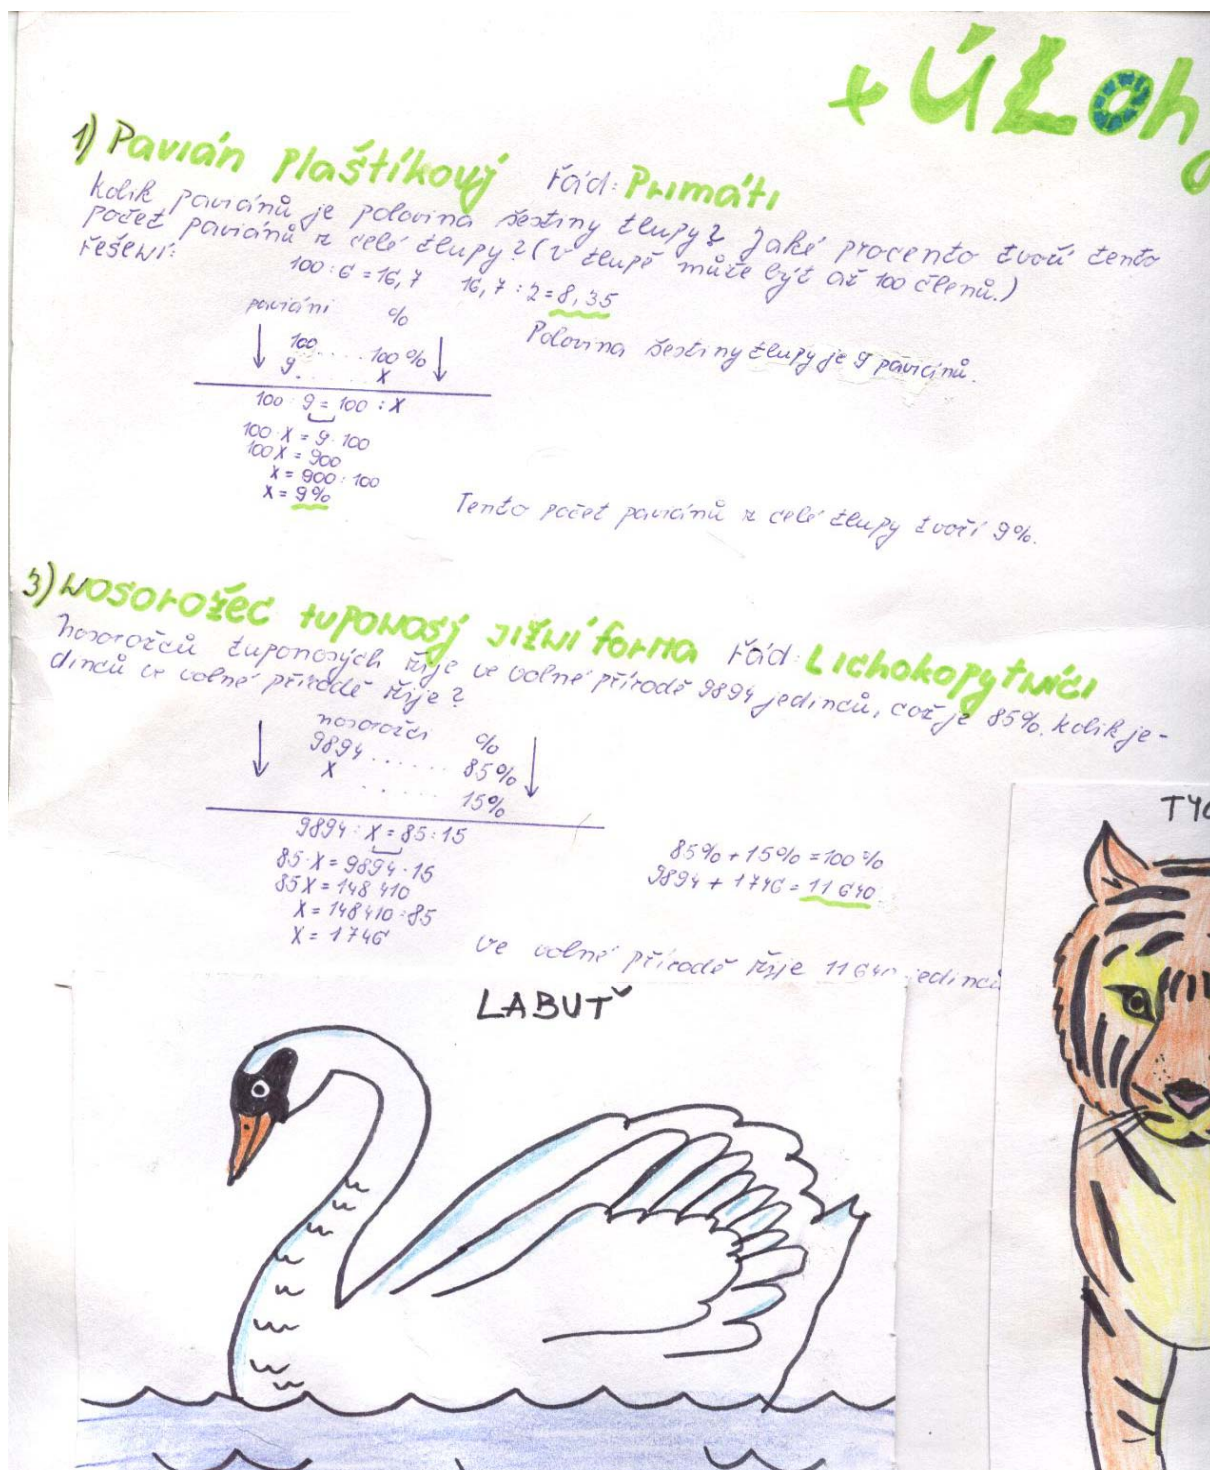 + ÚLohy
1) Pavián Plaštíkový řád: Primáti
Kolik paviánů je polovina šestiny tlupy? Jaké procento tvoří tento
počet paviánů z celé tlupy? (V tlupě může být až 100 členů.)
řešení:
100 : 6 = 16,7 16,7 : 2 = 8,35
paviáni %
100 .... 100 %
9 .... x
Polovina šestiny tlupy je 9 paviánů.
100 : 9 = 100 : x
100 · x = 9 · 100
100x = 900
x = 900 : 100
x = 9%
Tento počet paviánů z celé tlupy tvoří 9%.
3) Nosorožec tuponosý jižní forma řád: Lichokopytníci
Nosorožců tuponosých žije ve volné přírodě 9894 jedinců, což je 85%. Kolik je-
dinců ve volné přírodě žije?
nosorožci %
9894 ...... 85%
x ..... 15%
9894 : x = 85 : 15
85 · x = 9894 · 15
85x = 148 410
x = 148 410 : 85
x = 1746
85% + 15% = 100 %
9894 + 1746 = 11 640
Ve volné přírodě žije 11 640 jedinců
LABUŤ
TYG